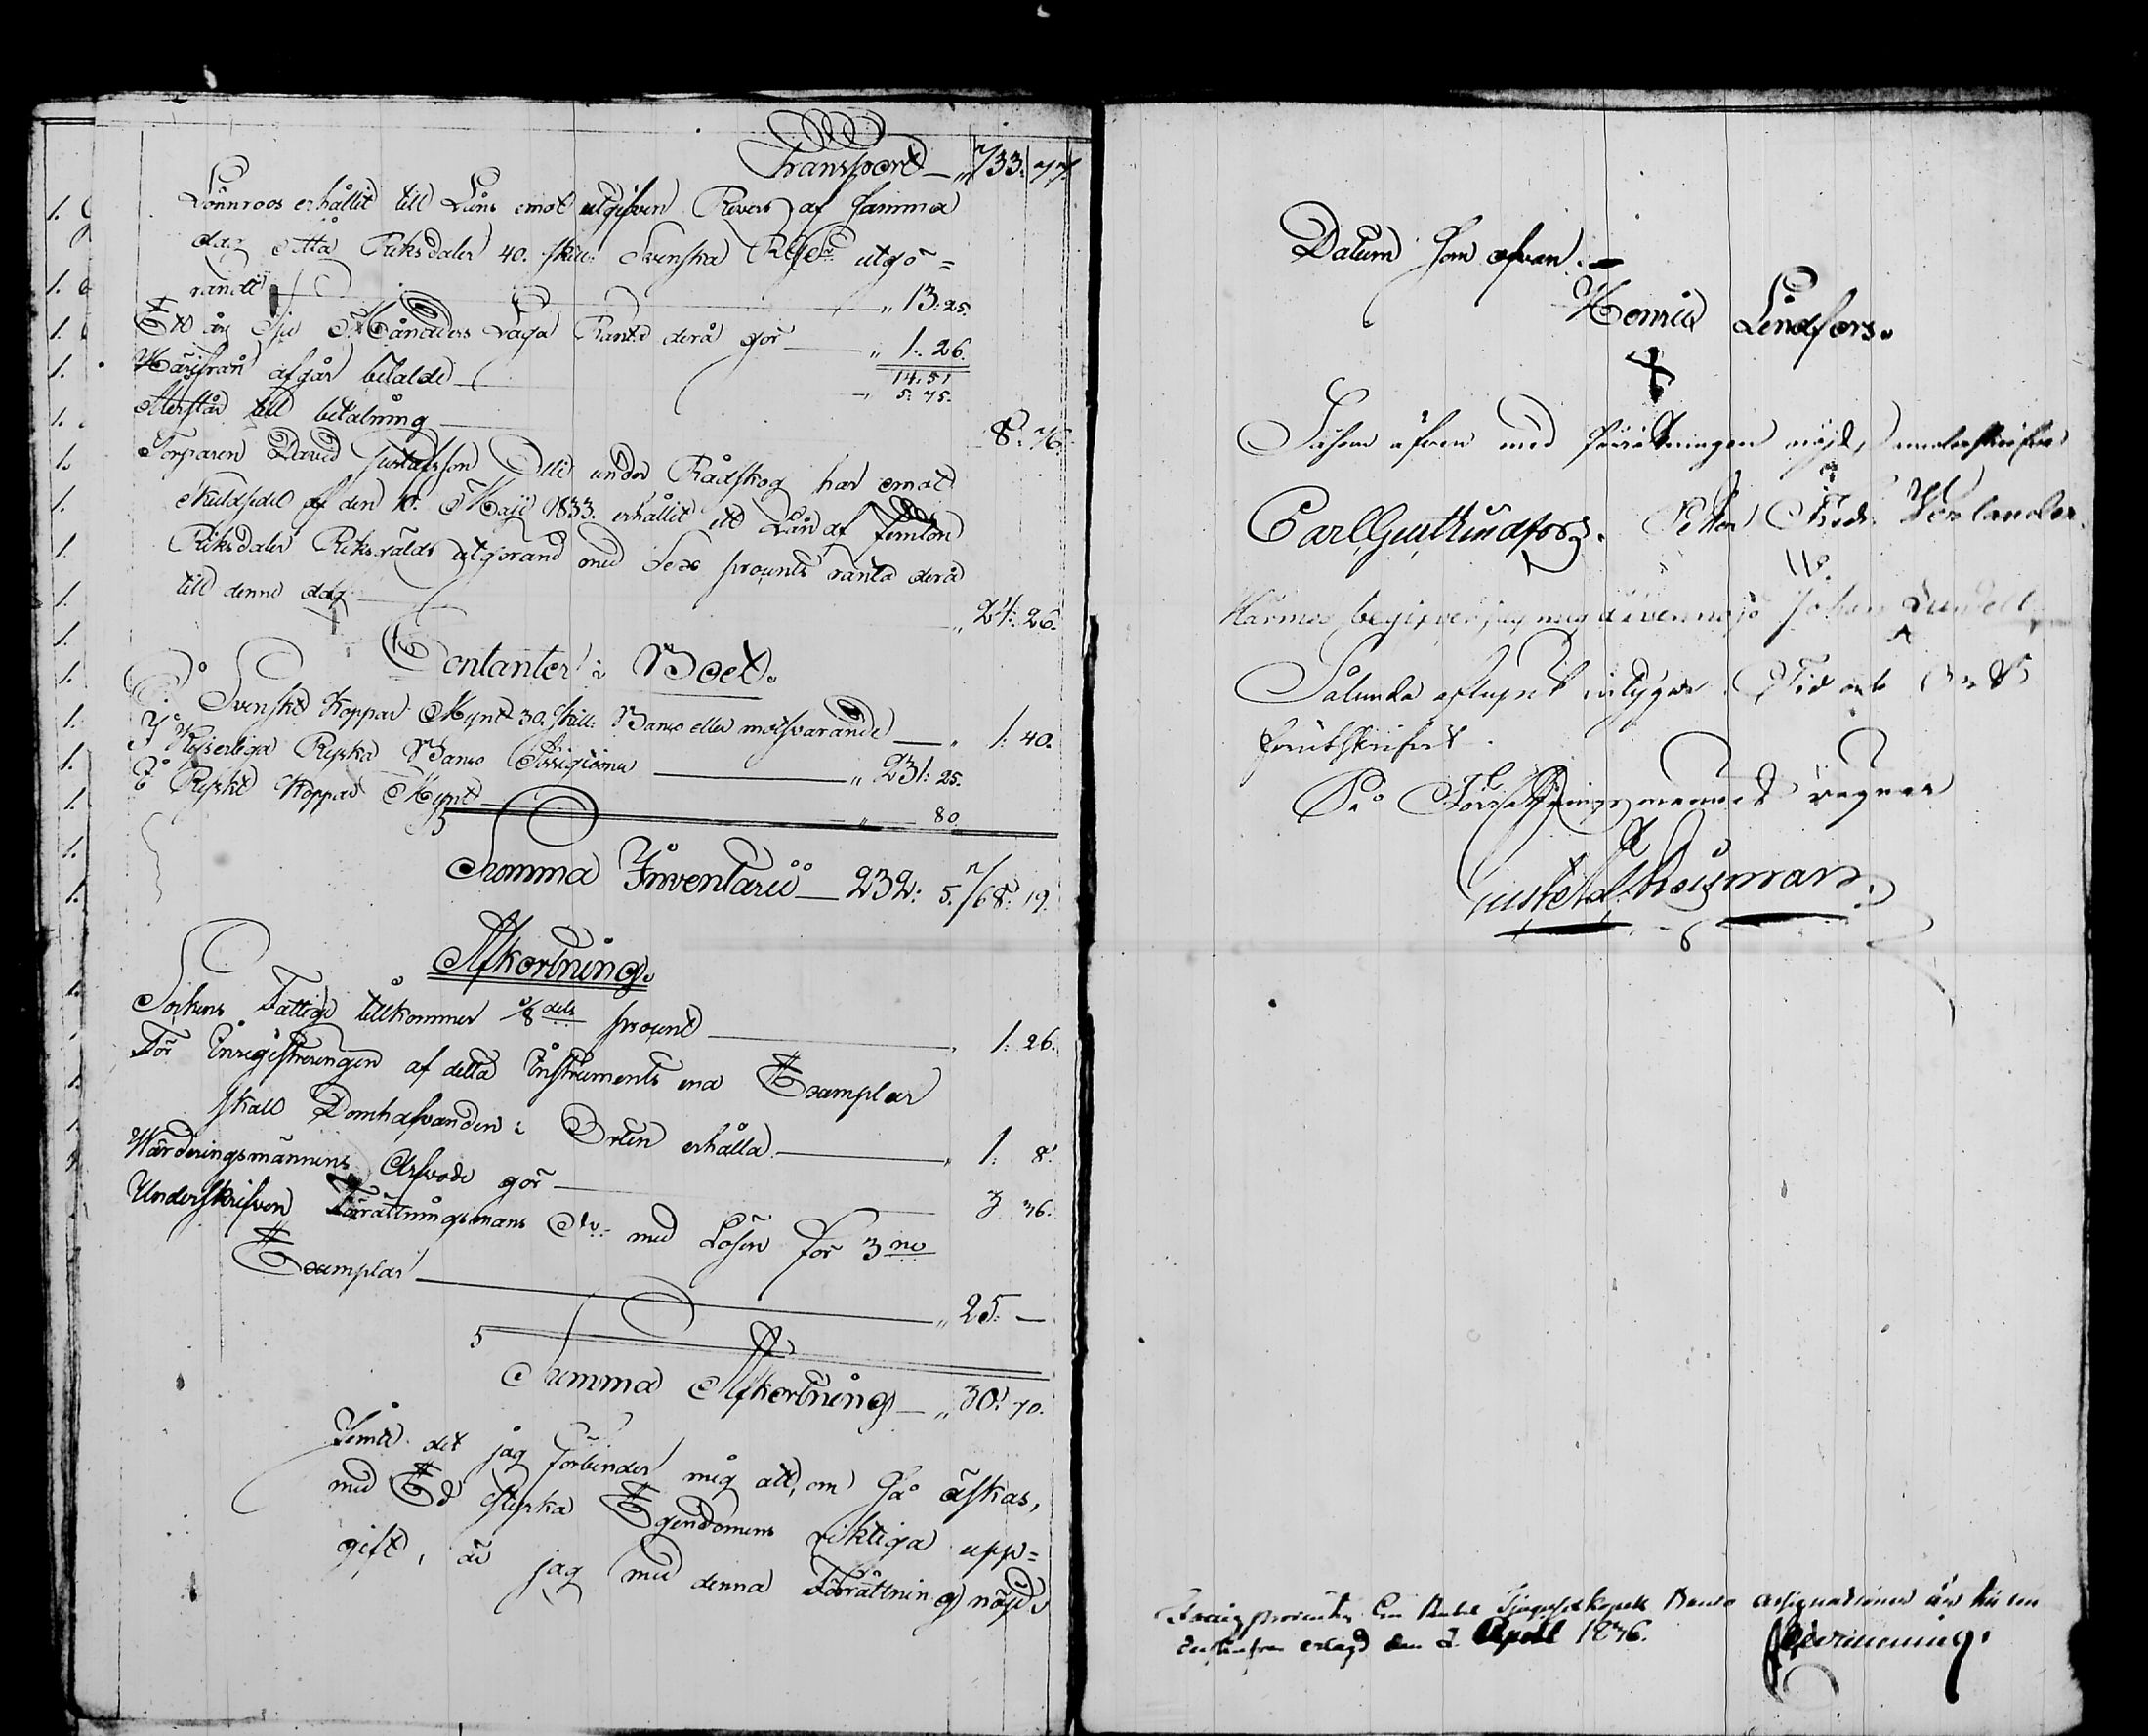 Transport — „ 733: 77.
Lönnroos erhållit till Låns emot utgifven Revers af samma
dag Åtta Riksdaler 40. skill: Svenska Rgs utgö=
randé — „ 13: 25.
Ett års Sju Månaders Laga Ränta derå gör — „ 1: 26.
14: 51
Härifrån afgår betalde — „ 5: 75.
Återstår till betalning — 8: 76.
Torparen David Gustafsson under Rådskog har emot
skuldsedel af den 10. Maji 1833. erhållit ett Lån af femton
Riksdaler Riksgälds utgörand med Sex procents ränta derå
till denne dag — „ 24: 26.
Contanter i Boet.
I Svenskt Koppar Mynt 30. skill: Banco eller motsvarande — „ 1: 40.
I Kejserliga Ryska Banco Assignationer — „ 231: 25.
I Ryskt Koppar Mynt — „ — 80.
Summa Inventarii — 232: 5. 768: 19.
Afkortning.
Sockens Fattige tillkommer 1/8 dels procent — „ 1: 26.
För Inregistreringen af detta Instruments ena Exemplar
skall Domhafvanden i Orten erhålla — „ 1: 8.
Värderingsmännens Arfvode gör — 3 36.
Underskrifven Förrättningsmans do med Lösen för 3ne
Exemplar — „ 25: —
Summa Afkortning — „ 30: 70.
Jemte det jag förbinder mig att, om så äskas,
med Ed styrka Egendomens riktiga upp=
gift, är jag med denna Förrättning nöjd
Datum som ofvan. —
Henric Lindfors.
Såsom äfven med förrättningen nöjd, underskrifver
Carl Gust Lindfors. Petter Fredr.
Härmed begifver jag mig äfven nöjd Johan Lundell
Sålunda aflupit intygar. Tid och Ort
förutskrifvet.
På Förrättningsmannens vägnar
Gustaf
procenten En Rubel kopek Banco Assignationer är
erlagd den 2. April 1836.